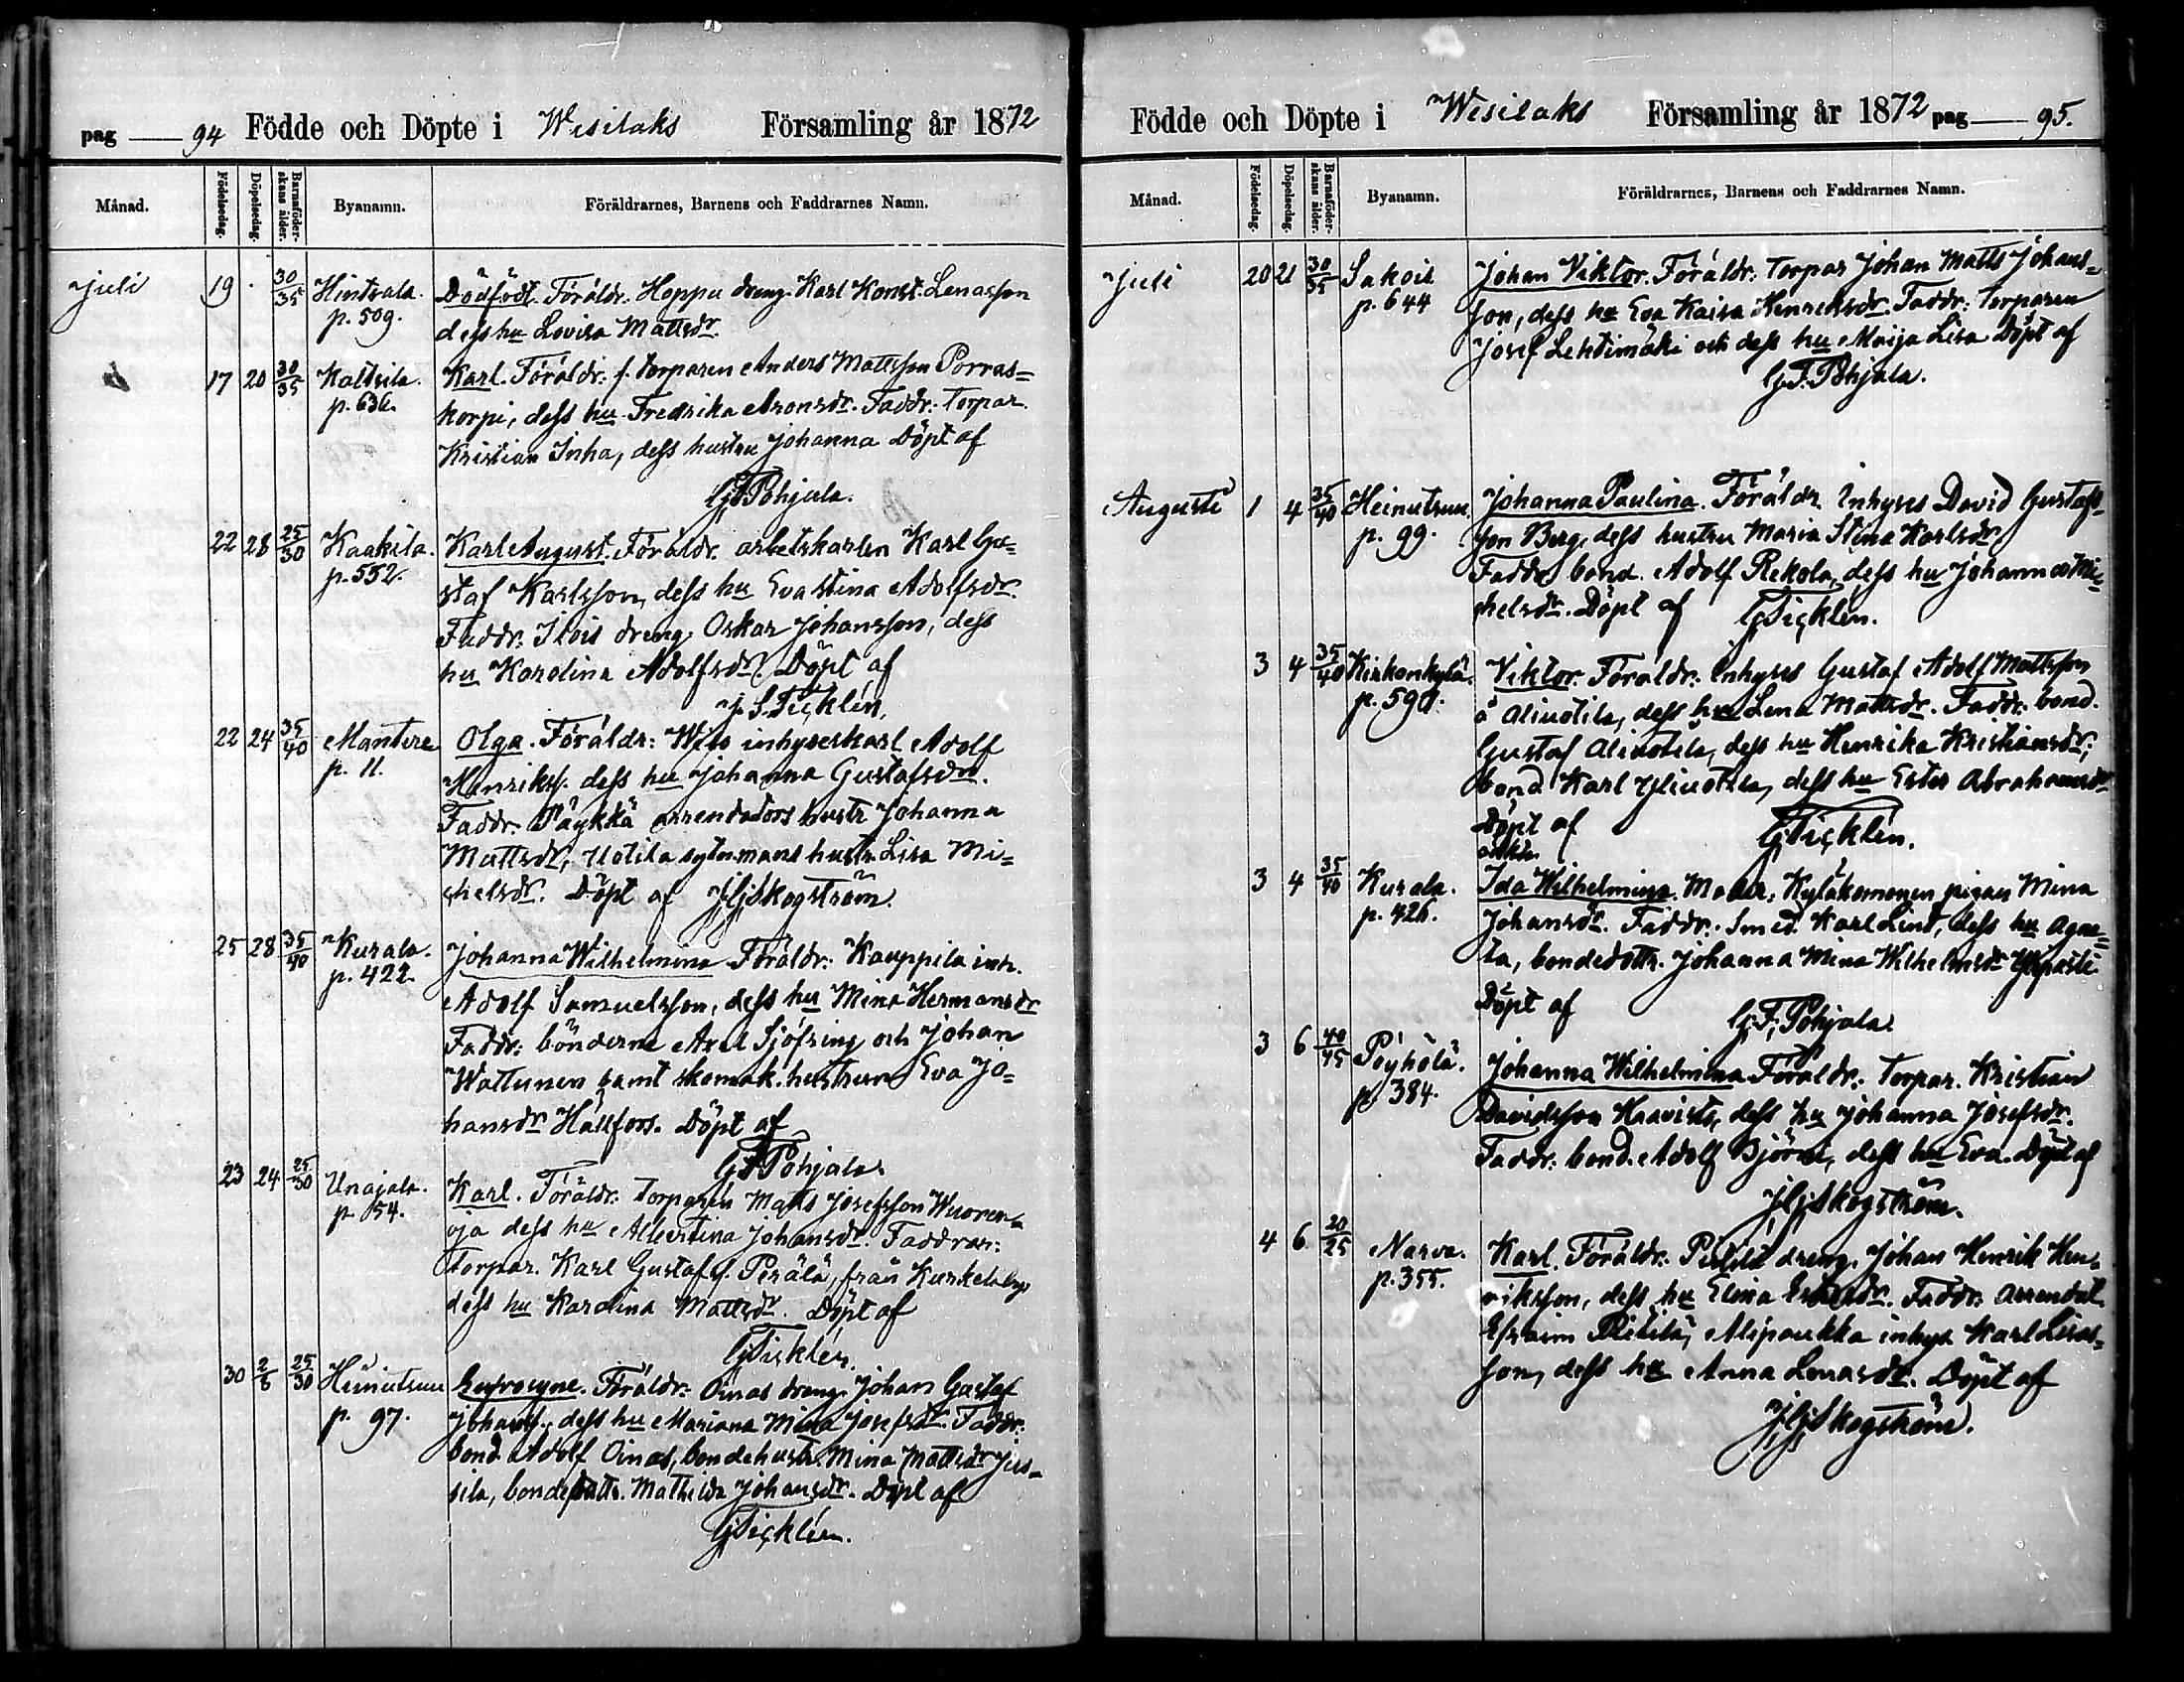 pag 94 Födde och Döpte i Wesilaks Församling år 1872
Månad. Födelsedag. Döpelsedag. Barnaföderskans ålder. Byanamn. Föräldrarnes, Barnens och Faddrarnes Namn.
Juli 19 . 30/35 Hintsala. Dödfödt. Föräldr. Hoppu dreng. Karl Konst. Lenasson
p. 509. dess hu Lovisa Mattsdr
17 20 30/35 Kaltsila. Karl. Föräldr. f. torparen Anders Mattsson Porras=
p. 636. korpi, dess hu Fredrika Aronsdr. Faddr. Torpar.
Kristian Inha, dess hustru Johanna Döpt af
G.F. Pohjala.
22 28 25/30 Kaakila. Karl August. Föräldr. arbetskarlen Karl Gu=
p. 552. staf Karlsson, dess hu Eva Stina Adolfsdr.
Faddr. Ilois dreng. Oskar Johansson, dess
hu Karolina Adolfsdr. Döpt af
Ticklén.
22 24 35/40 Mantere Olga. Föräldr: inhyseskarl Adolf
p. 11. Henrikss. dess hu Johanna Gustafsdr.
Faddr. Päykkä arrendators hustr Johanna
Mattsdr, Uotila sytn.mans hustr. Lisa Mi=
chelsdr. Döpt af Skogström
25 28 35/40 Kurala. Johanna Wilhelmina Föräldr. Kauppila inh.
p. 422. Adolf Samuelsson, dess hu Mina Hermansdr
Faddr: bönderne Axel Sjöfring och Johan
Wattunen samt skomak. hustrun Eva Jo=
hansdr Hällfors. Döpt af
G.F. Pohjala.
23 24 25/30 Unajala. Karl. Föräldr. torparen Matts Josefsson Wuoren=
p. 54. oja dess hu Albertina Johansdr. Faddrar:
Torpar. Karl Gustafs. Perälä, från Kurkela by,
dess hu Karolina Mattsdr. Döpt af
Ticklén.
30 2/8 25/30 Heinutsuu Eufrosyne. Föräldr. Oinas dreng. Johan Gustaf
p. 97. Johanss. dess hu Mariana Mina Josefsdr. Faddr:
bond. Adolf Oinas, bondehustr. Mina Mattsdr Jus=
sila, bondedottr. Mathilda Johansdr. Döpt af
Ticklén.
Födde och Döpte i Wesilaks Församling år 1872 pag 95.
Månad. Födelsedag. Döpelsedag. Barnaföderskans ålder. Byanamn. Föräldrarnes, Barnens och Faddrarnes Namn.
Juli 20 21 30/35 Sakois Johan Viktor. Föräldr. Torpar Johan Matts Johans=
p. 644 son, dess hu Eva Kaisa Henriksdr. Faddr: Torparen
Josef Lehtimäki och dess hu Maija Lisa Döpt af
G.F. Pohjala.
Augusti 1 4 35/40 Heinutsuu. Johanna Paulina. Föräldr. Inhyses David Gustafs=
p. 99. son Berg, dess hustru Maria Stina Karlsdr.
Faddr. bond. Adolf Rekola, dess hu Johanna Mi=
chelsdr. Döpt af Ticklén.
3 4 35/40 Kirkonkylä. Viktor. Föräldr. Inhyses Gustaf Adolf Mattsson
p. 590. å Aliuotila, dess hu Lena Mattsdr. Faddr. bond.
Gustaf Aliuotila, dess hu Henrika Kristiansdr;
bond Karl Yliuotila, dess hu Ester Abrahamsdr
Döpt af Ticklén.
oäkta.
3 4 35/40 Kurala. Ida Wilhelmina. Moder: Kyläkomonen pigan Mina
p. 426. Johansdr. Faddr. Smed. Karl Lind, dess hu Agne=
ta, bondedottr. Johanna Mina Wilhelmsdr
Döpt af G.F. Pohjala.
3 6 40/45 Pöyhölä. Johanna Wilhelmina Föräldr. Torpar. Kristian
p. 384. Davidsson Haavisto, dess hu Johanna Josefsdr.
Faddr. bond. Adolf Björni, dess hu Eva. Döpt af
Skogström.
4 6 20/25 Narva. Karl. Föräldr. dreng. Johan Henrik Hen=
p. 355. riksson, dess hu Elina Faddr. Arrendat.
Efraim Alipaukka inhys Karl Lisas=
son, dess hu Anna Lenasdr. Döpt af
Skogström.